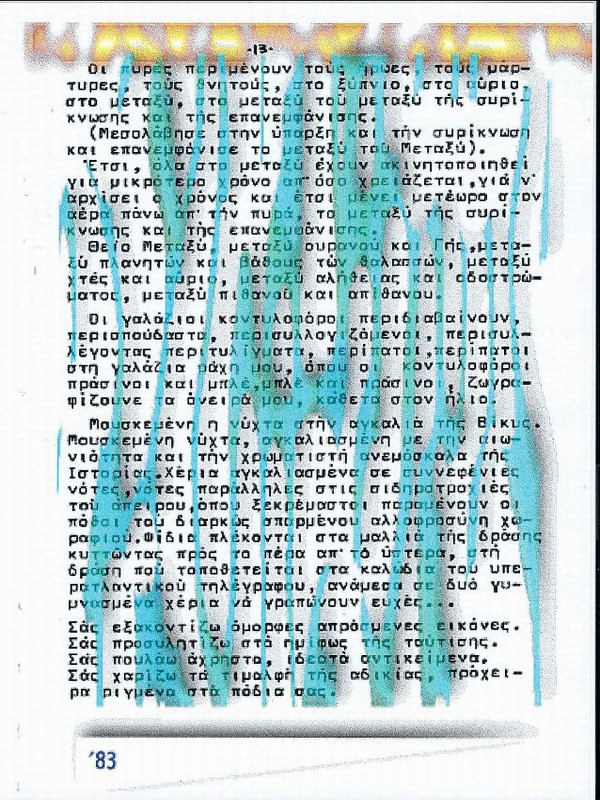 -13-
Οι πυρές περιμένουν τούς ήρωες, τούς μάρ-
τυρες, τούς θνιτούς, στο ξύπνιο, στο αύριο,
στο μεταξύ, στο μεταξύ τού μεταξύ τής συρί-
κνωσης και τής επανεμφάνισης.
(Μεσολάβησε στην ύπαρξη και τήν συρίκνωση
και επανεμφάνισε το μεταξύ τού Μεταξύ).
Έτσι, όλα στο μεταξύ έχουν ακινητοποιηθεί
γιά μικρότερο χρόνο απ'όσο χρειάζεται,γιά ν'
αρχίσει ο χρόνος και έτσι μένει μετέωρο στον
αέρα πάνω απ'τήν πυρά, το μεταξύ τής συρί-
κνωσης καί τής επανεμφάνισης.
Θείο Μεταξύ, μεταξύ ουρανού και Γής,μετα-
ξύ πλανητών και βάθους τών θαλασσών, μεταξύ
χτές και αύριο, μεταξύ αλήθειας και οδοστρώ-
ματος, μεταξύ πιθανού και απίθανου.
Οι γαλάζιοι κοντυλοφόροι περιδιαβαίνουν,
περισπούδαστα, περισυλλογιζόμενοι, περισυλ-
λέγοντας περιτυλίγματα, περίπατοι,περίπατοι
στη γαλάζια ράχη μου, όπου οι κοντυλοφόροι
πράσινοι και μπλέ,μπλέ και πράσινοι, ζωγρα-
φίζουνε τα όνειρά μου, κάθετα στον ήλιο.
Μουσκεμένη η νύχτα στήν αγκαλιά τής Βίκυς.
Μουσκεμένη νύχτα, αγκαλιασμένη με την αιω-
νιότητα και τήν χρωματιστή ανεμόσκαλα τής
Ιστορίας.Χέρια αγκαλιασμένα σε συννεφένιες
νότες,νότες παράλληλες στις σιδηροτροχιές
τού απείρου,όπου ξεκρέμαστοι παραμένουν οι
πόθοι τού διαρκώς σπαρμένου αλλοφροσύνη χω-
ραφιού.Φίδια πλέκονται στα μαλλιά τής δράσης
κυττώντας πρός το πέρα απ'τό ύπτερα, στή
δράση πού τοποθετείται στα καλώδια τού υπε-
ρατλαντικού τηλέγραφου, ανάμεσα σε δυό γυ-
μνασμένα χέρια νά γραπώνουν ευχές...
Σάς εξακοντίζω όμορφες απρόσμενες εικόνες.
Σάς προσυλητίζω στο ημίφως τής ταύτισης.
Σάς πουλάω άχρηστα, ιδεατά αντικείμενα.
Σάς χαρίζω τά τιμαλφή τής αδικίας, πρόχει-
ρα ριγμένα στά πόδια σας.
'83